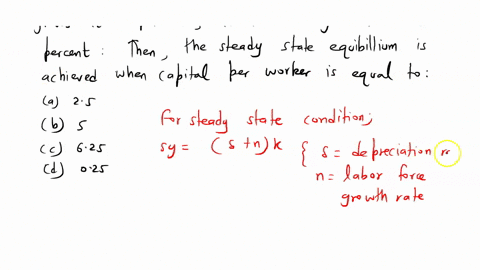 percent: Then, the steady state equibillium is
achieved when capital per worker is equal to:
(a) 2.5
(b) 5
(c) 6.25
(d) 0.25
for steady state condition;
sy = (s+n)k { s = depreciation r
n = labor force
growth rate